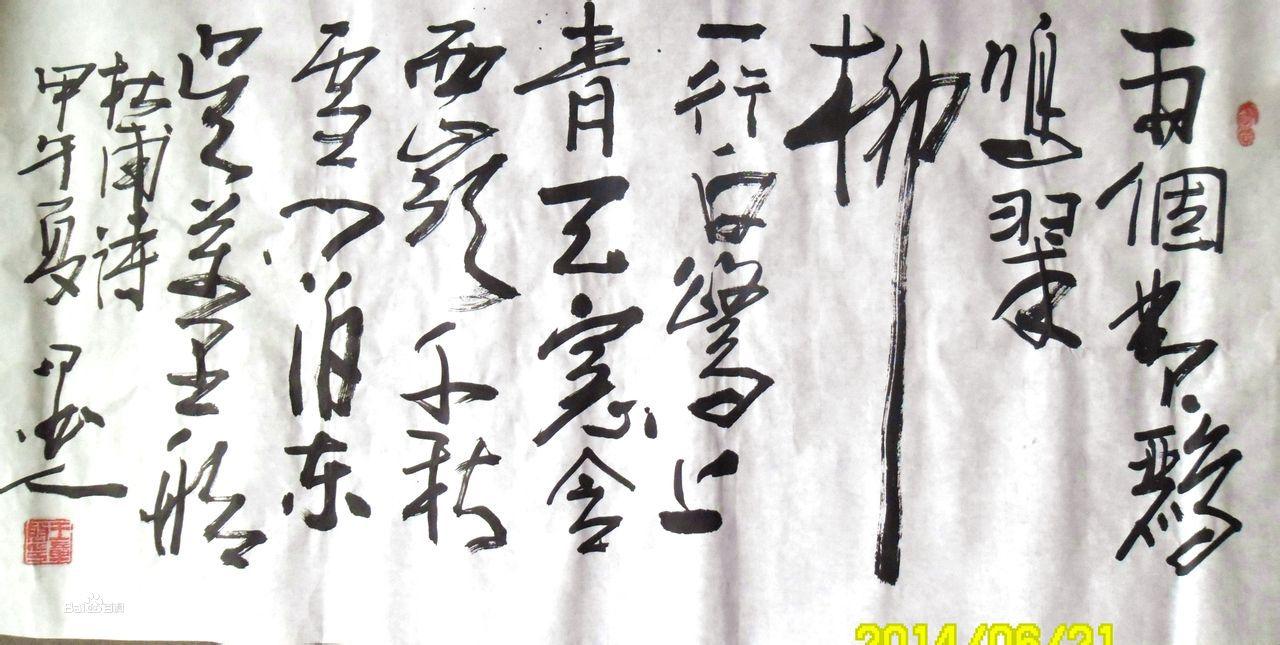 兩個黃鸝
鳴翠
柳
一行白鷺上
青天窓含
西嶺千秋
雪門泊東
吳萬里船
杜甫詩
甲午夏
Bai百科
2014/06/21